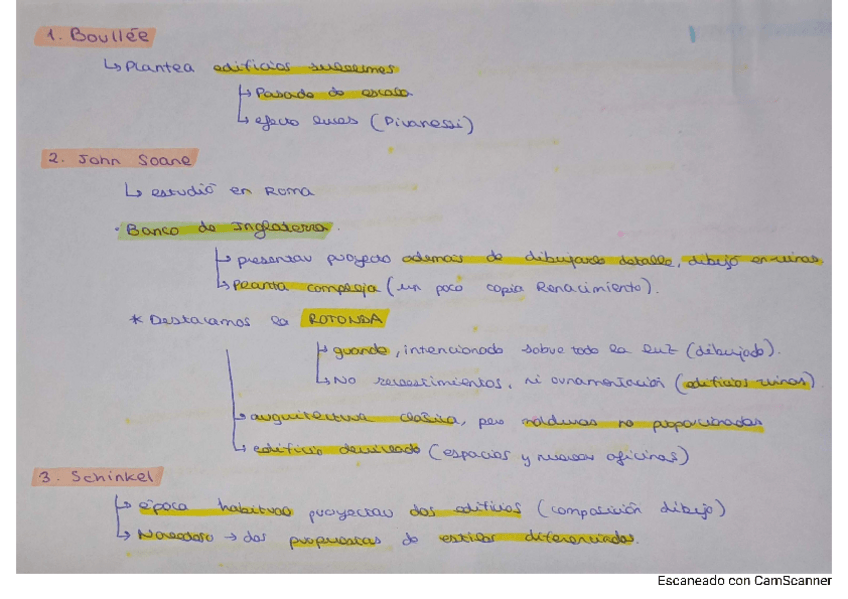 1. Boullée
↳ Plantea edificios sublimes
↳ Pasado de escala.
↳ efecto luces (Piranessi)
2. John Soane
↳ estudió en Roma
· Banco de Inglaterra.
↳ presentar proyecto además de dibujarlo detalle, dibujó en ruinas.
↳ Planta compleja (un poco copia Renacimiento).
* Destacamos la ROTONDA
↳ grande, intencionado sobre todo la luz (dibujado).
↳ No revestimientos, ni ornamentación (edificios ruinas)
↳ arquitectura clásica, pero molduras no proporcionadas
↳ edificio derribado (espacios y nuevas oficinas)
3. Schinkel
↳ época habitual proyectar dos edificios (composición dibujo)
↳ Novedoso → dos propuestas de estilos diferenciados.
Escaneado con CamScanner